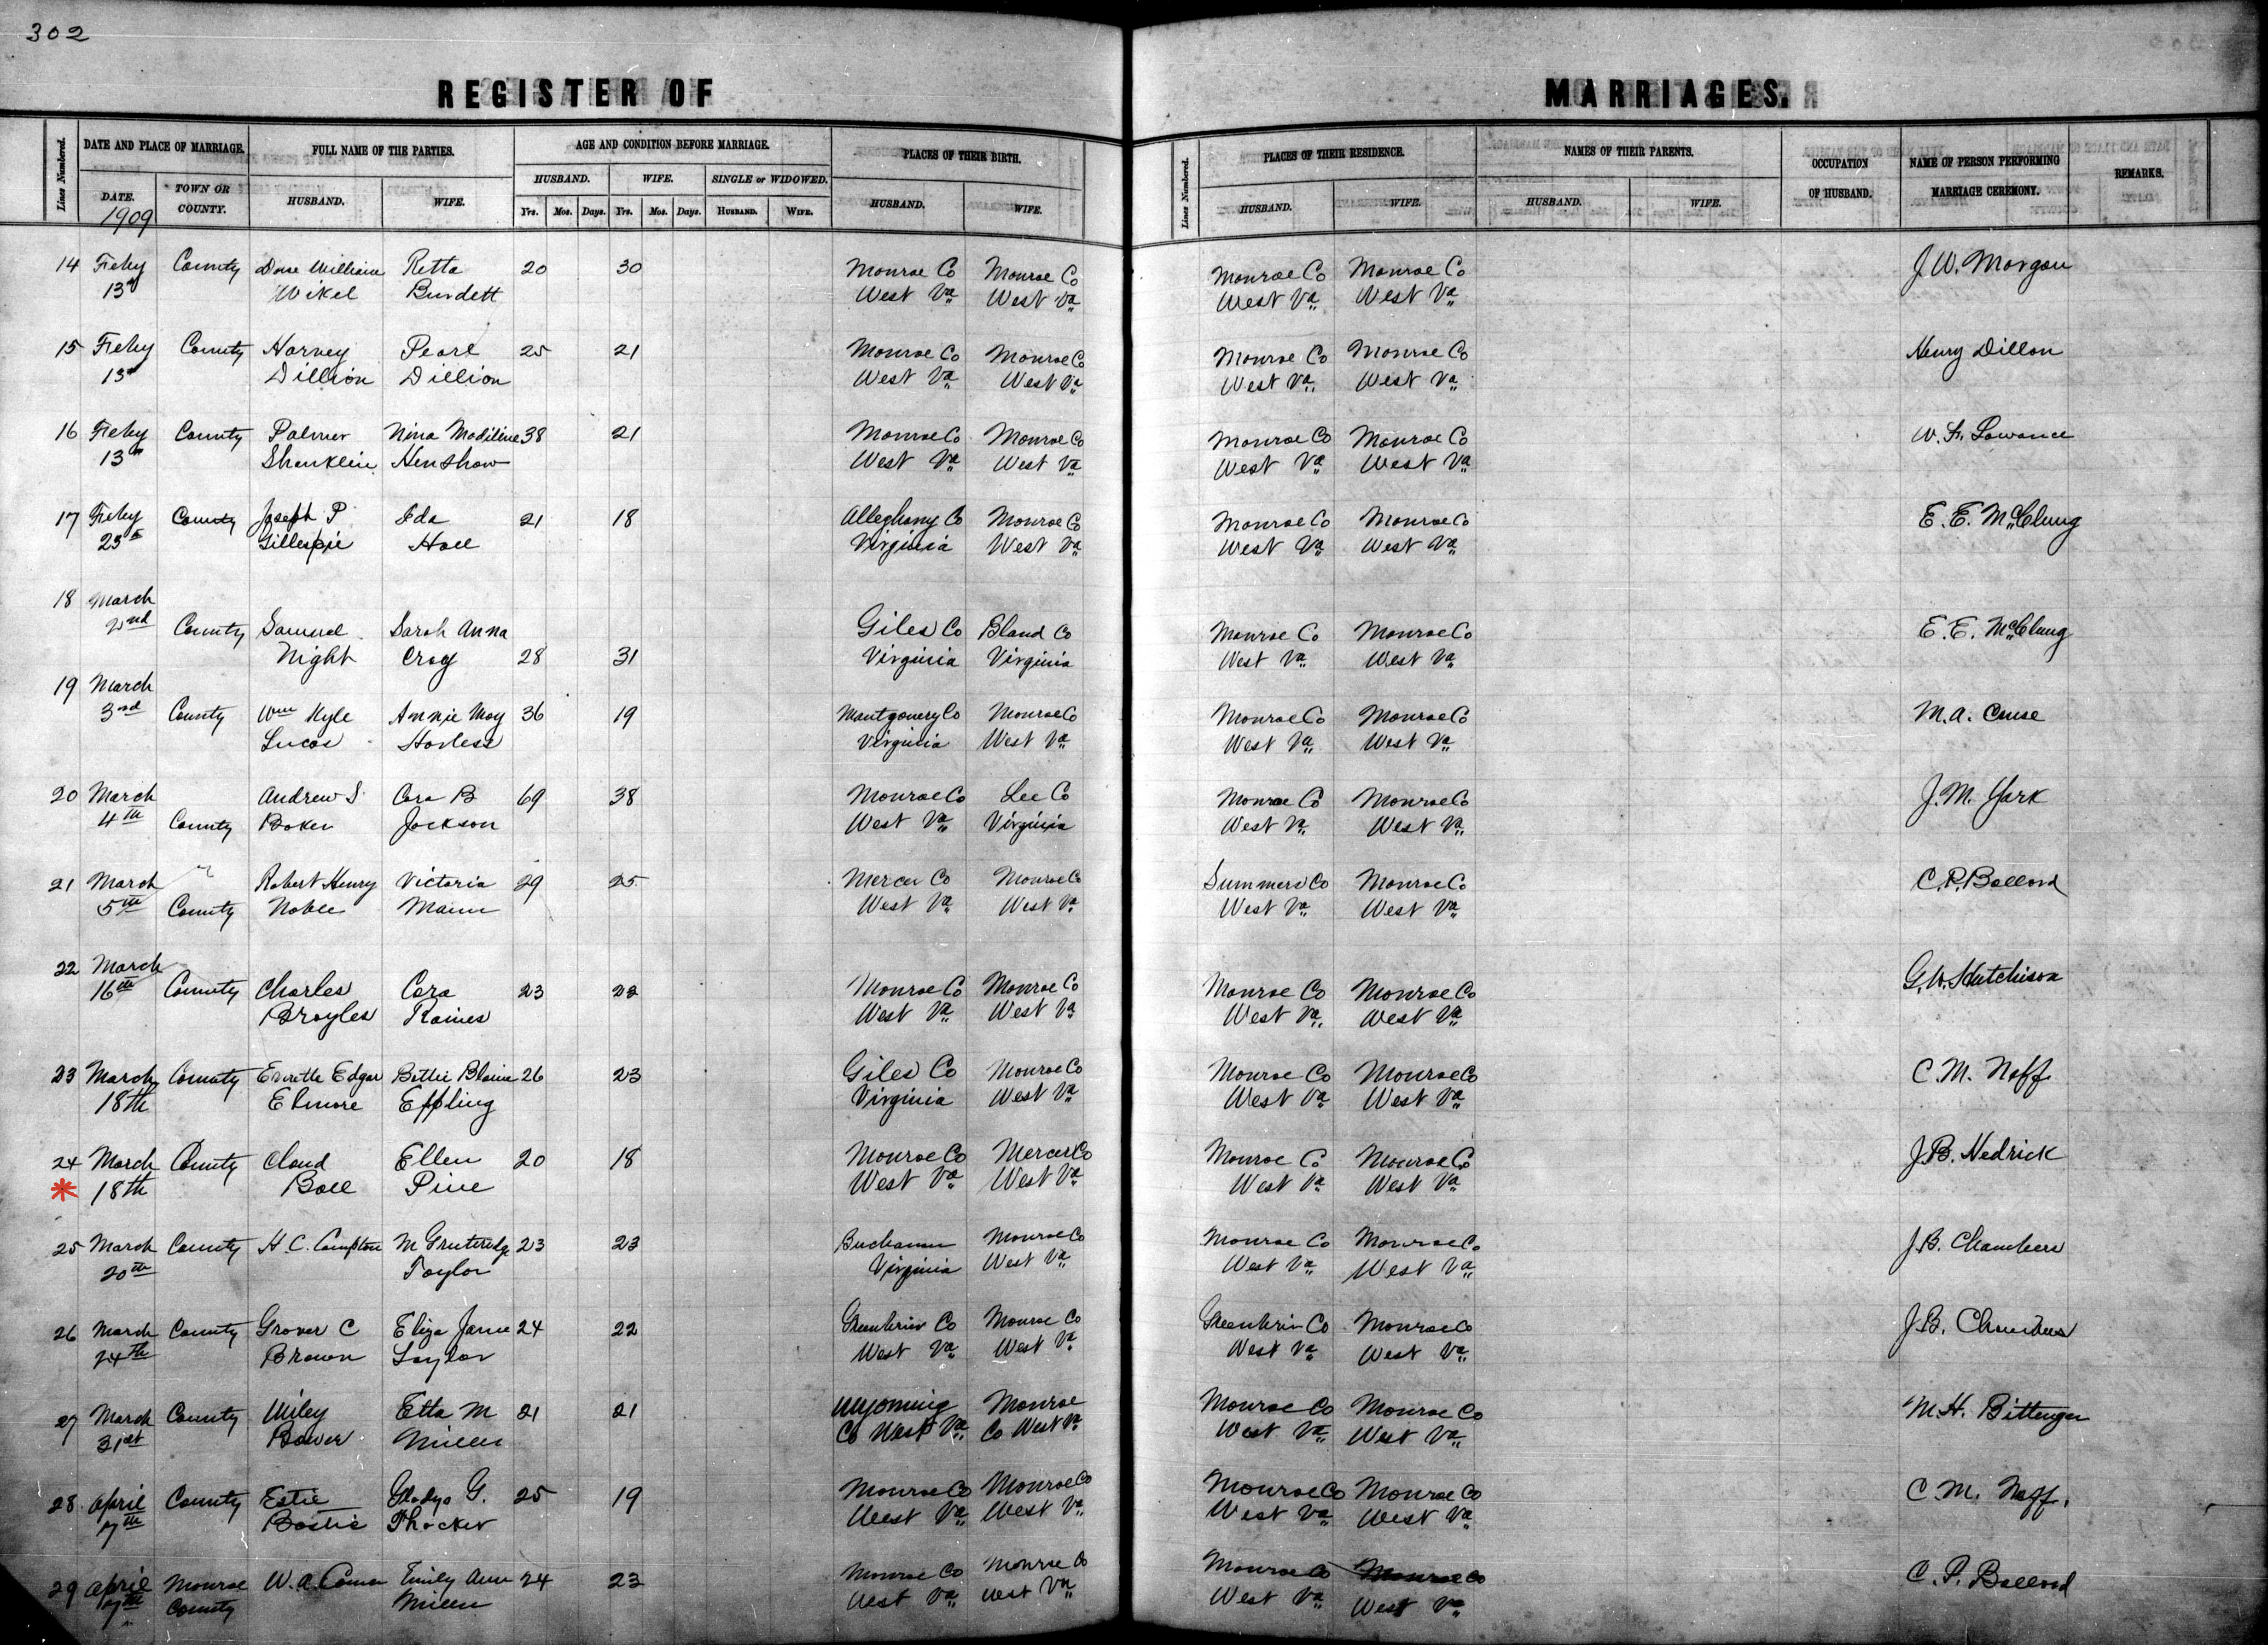 302
REGISTER OF MARRIAGES.
Lines Numbered.
DATE AND PLACE OF MARRIAGE.
FULL NAME OF THE PARTIES.
AGE AND CONDITION BEFORE MARRIAGE.
PLACES OF THEIR BIRTH.
Lines Numbered.
PLACES OF THEIR RESIDENCE.
NAMES OF THEIR PARENTS.
OCCUPATION OF HUSBAND.
NAME OF PERSON PERFORMING MARRIAGE CEREMONY.
REMARKS.
HUSBAND. WIFE. SINGLE or WIDOWED.
DATE. TOWN OR COUNTY. HUSBAND. WIFE. Yrs. Mos. Days. Yrs. Mos. Days. HUSBAND. WIFE. HUSBAND. WIFE. HUSBAND. WIFE. HUSBAND. WIFE.
1909
14 Feby County Dose William Retta 20 30 Monroe Co Monroe Co Monroe Co Monroe Co J. W. Morgan
13th Wikel Burdett West Va West Va West Va West Va
15 Feby County Harvey Pearl 25 21 Monroe Co Monroe Co Monroe Co Monroe Co Henry Dillon
13th Dillion Dillion West Va West Va West Va West Va
16 Feby County Palmer Nina Madiline 38 21 Monroe Co Monroe Co Monroe Co Monroe Co W. F. Lowance
13th Shanklin Henshaw West Va West Va West Va West Va
17 Feby County Joseph P Ida 21 18 Alleghany Co Monroe Co Monroe Co Monroe Co E. E. McClung
23d Gillespie Hall Virginia West Va West Va West Va
18 March
2nd County Samuel Sarah Anna Giles Co Bland Co Monroe Co Monroe Co E. E. McClung
Night Croy 28 31 Virginia Virginia West Va West Va
19 March
3rd County Wm Kyle Annie May 36 19 Montgomery Co Monroe Co Monroe Co Monroe Co M. A. Cruse
Lucas Harless Virginia West Va West Va West Va
20 March Andrew S. Cora B 69 38 Monroe Co Lee Co Monroe Co Monroe Co J. M. York
4th County Baker Jackson West Va Virginia West Va West Va
21 March Robert Henry Victoria 29 25 Mercer Co Monroe Co Summers Co Monroe Co C. P. Ballard
5th County Noble Mann West Va West Va West Va West Va
22 March
16th County Charles Cora 23 22 Monroe Co Monroe Co Monroe Co Monroe Co G. W. Hutchison
Broyles Raines West Va West Va West Va West Va
23 March County Everette Edgar Bettie Blaine 26 23 Giles Co Monroe Co Monroe Co Monroe Co C. M. Neff
18th Elmore Eppling Virginia West Va West Va West Va
24 March County Claud Ellen 20 18 Monroe Co Mercer Co Monroe Co Monroe Co J. B. Hedrick
* 18th Ball Pine West Va West Va West Va West Va
25 March County H. C. Compton M 23 23 Buchanan Monroe Co Monroe Co Monroe Co J. B. Chambers
20th Taylor Virginia West Va West Va West Va
26 March County Grover C Eliza Jane 24 22 Greenbrier Co Monroe Co Greenbrier Co Monroe Co J. B. Chambers
24th Brown Taylor West Va West Va West Va West Va
27 March County Wiley Etta M 21 21 Wyoming Monroe Monroe Co Monroe Co M. H. Bittenger
31st Bower Miller Co West Va Co West Va West Va West Va
28 April County Estie Gladys G. 25 19 Monroe Co Monroe Co Monroe Co Monroe Co C. M. Neff.
7th Bostic Thacker West Va West Va West Va West Va
29 April Monroe W. A. Comer Emily Ann 24 23 Monroe Co Monroe Co Monroe Co Monroe Co C. P. Ballard
7th County Miller West Va West Va West Va West Va